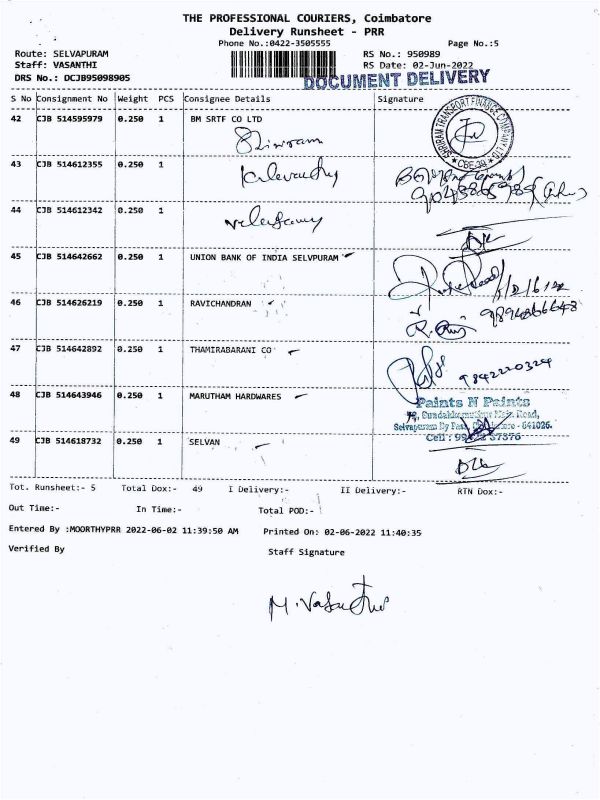 THE PROFESSIONAL COURIERS, Coimbatore
Delivery Runsheet - PRR
Phone No.:0422-3505555 Page No.:5
Route: SELVAPURAM RS No.: 950989
Staff: VASANTHI RS Date: 02-Jun-2022
DRS No.: DCJB95098905 DOCUMENT DELIVERY
S No Consignment No Weight PCS Consignee Details Signature
42 CJB 514595979 0.250 1 BM SRTF CO LTD
SHRIRAM TRANSPORT FINANCE COMPANY LTD
* CBE-39 *
43 CJB 514612355 0.250 1
44 CJB 514612342 0.250 1
45 CJB 514642662 0.250 1 UNION BANK OF INDIA SELVPURAM
46 CJB 514626219 0.250 1 RAVICHANDRAN
47 CJB 514642892 0.250 1 THAMIRABARANI CO
9842220324
48 CJB 514643946 0.250 1 MARUTHAM HARDWARES
Paints N Paints
Main Road,
Selvapuram By Pass, - 641026.
Cell :
49 CJB 514618732 0.250 1 SELVAN
Tot. Runsheet:- 5 Total Dox:- 49 I Delivery:- II Delivery:- RTN Dox:-
Out Time:- In Time:- Total POD:-
Entered By :MOORTHYPRR 2022-06-02 11:39:50 AM Printed On: 02-06-2022 11:40:35
Verified By Staff Signature